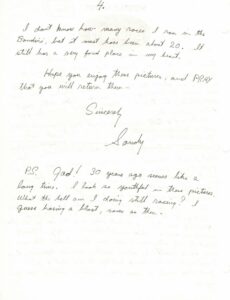 4.
I don't know how many races I ran in the
Bandini, but it must have been about 20. It
still has a very fond place in my heart.
Hope you enjoy these pictures, and PRAY
that you will return them.
Sincerely
Sandy
P.S. Gad! 30 years ago seems like a
long time. I look so youthful in these pictures.
What the hell am I doing still racing? I
guess having a blast, same as then.